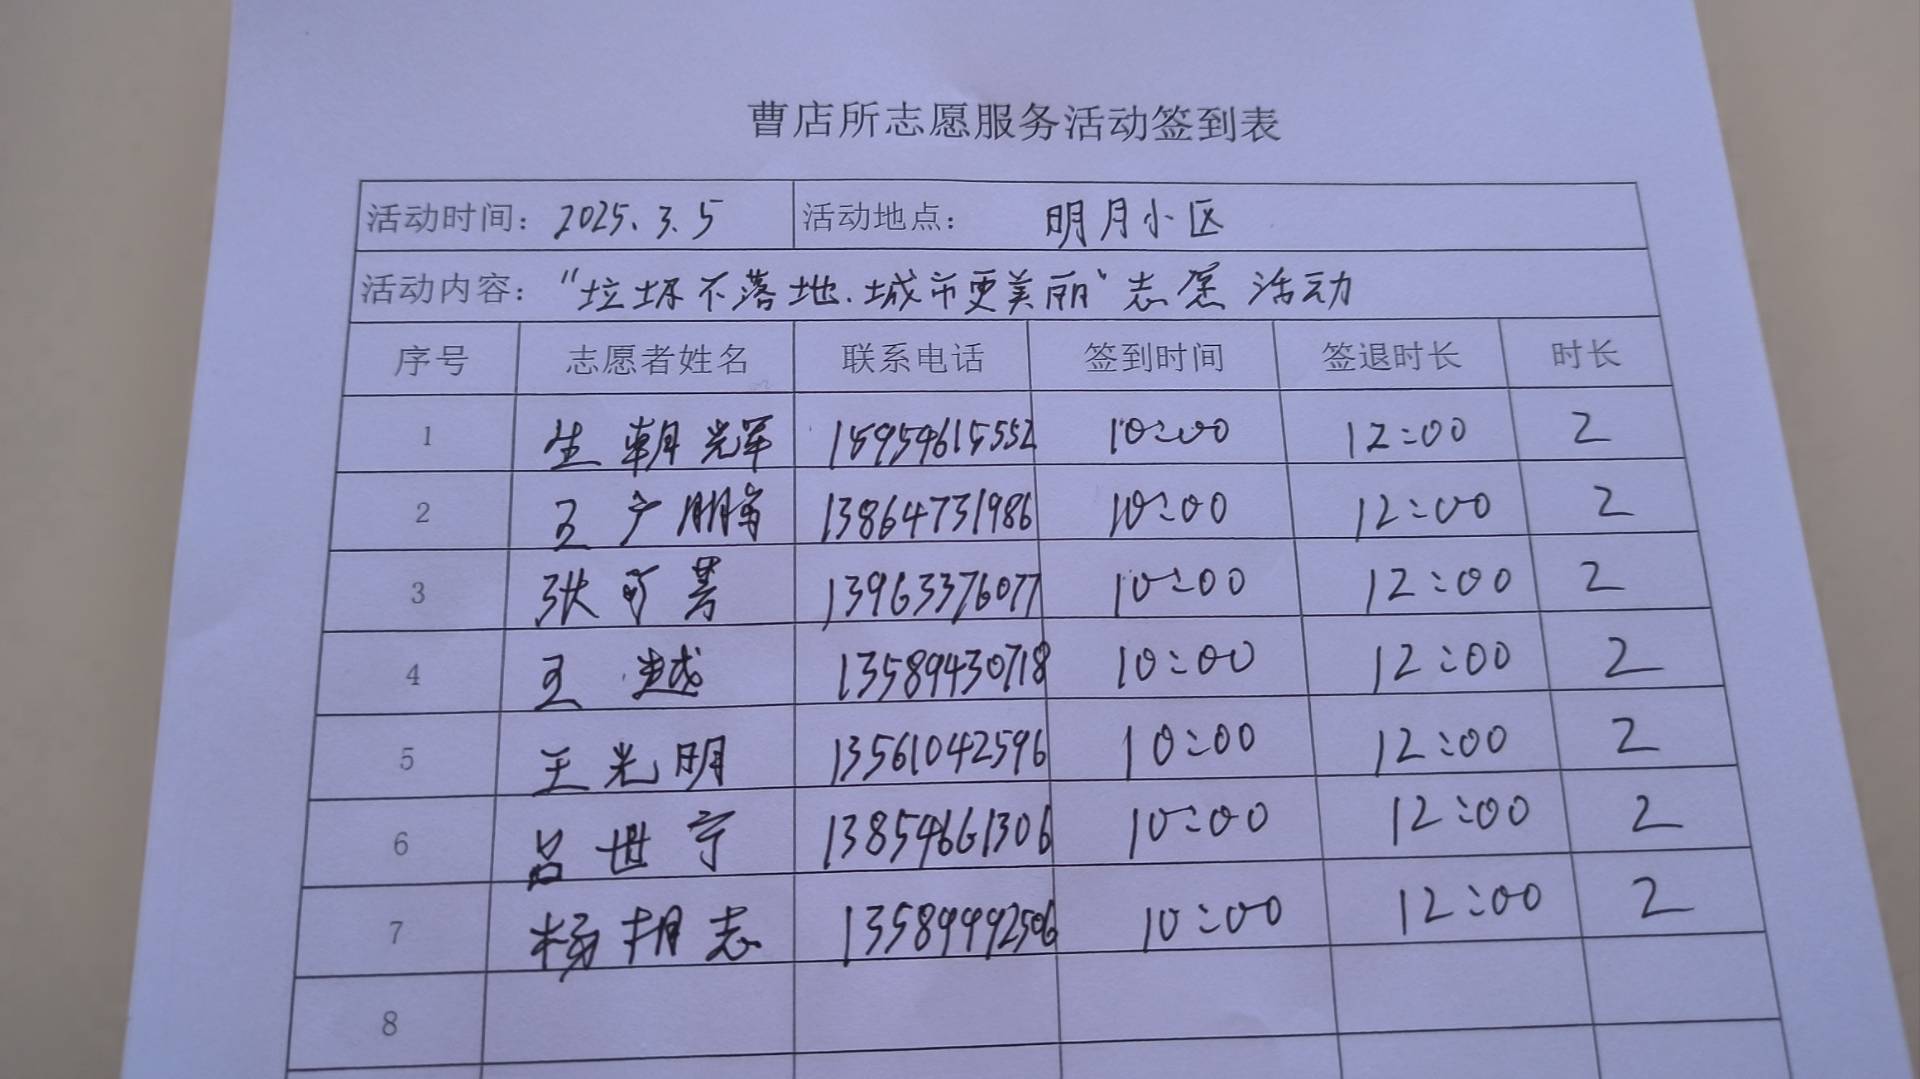 曹店所志愿服务活动签到表
活动时间: 2025.3.5 活动地点: 明月小区
活动内容: “垃圾不落地.城市更美丽”志愿活动
序号 志愿者姓名 联系电话 签到时间 签退时长 时长
1 生朝辉 15954615552 10:00 12:00 2
2 王广鹏 13864731986 10:00 12:00 2
3 张可 13963376077 10:00 12:00 2
4 王越 13589430718 10:00 12:00 2
5 王光明 13561042596 10:00 12:00 2
6 吕世宁 13854661306 10:00 12:00 2
7 杨志 13589992506 10:00 12:00 2
8